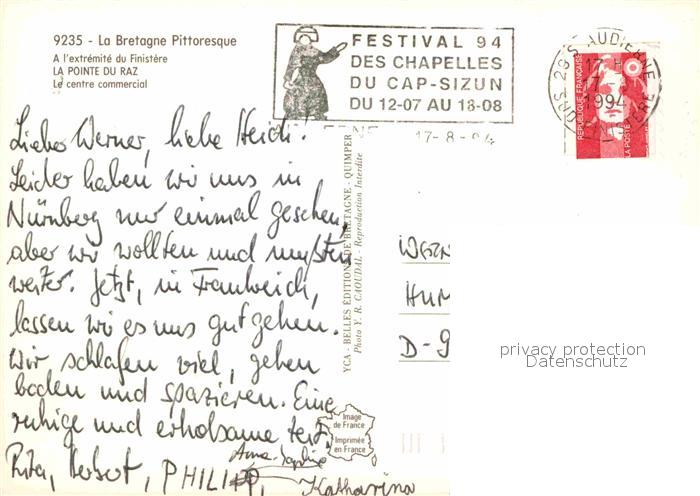 9235 - La Bretagne Pittoresque
A l'extrémité du Finistère
LA POINTE DU RAZ
Le centre commercial
FESTIVAL 94
DES CHAPELLES
DU CAP-SIZUN
DU 12-07 AU 18-08
29 S. AUDIERNE
17 H
17-8
1994
FINISTERE
REPUBLIQUE FRANÇAISE
LA POSTE
17-8-94
Lieber Werner, liebe Heidi!
Leider haben wir uns in
Nürnberg nur einmal gesehen,
aber wir wollten und mußten
weiter. Jetzt, in Frankreich,
lassen wir es uns gut gehen.
Wir schlafen viel, gehen
baden und spazieren. Eine
ruhige und erholsame Zeit.
Rita, Herbert, PHILIPP,
Anna-Sophie
Katharina
YCA - BELLES ÉDITIONS DE BRETAGNE - QUIMPER
Photo Y. R. CAOUDAL - Reproduction Interdite
Image
de France
Imprimée
en France
HUM
D-9
privacy protection
Datenschutz